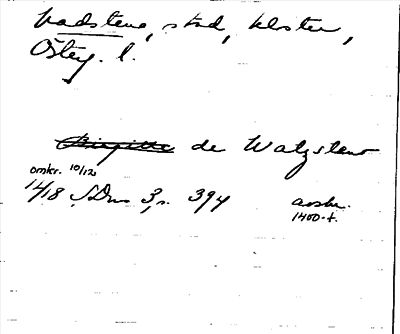 Vadstena, stad, kloster,
Österg. l.
Birgitta de Watzstena
omkr. 10/12
1418 SDns 3, s. 394 avskr.
1400-t.